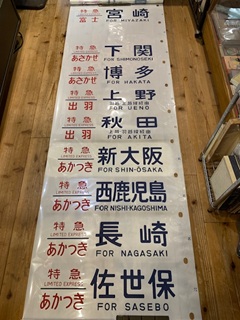 特急 富士 宮崎
FOR MIYAZAKI
特急 あさかぜ 下関
FOR SHIMONOSEKI
特急 あさかぜ 博多
FOR HAKATA
特急 出羽 上野
FOR UENO
特急 出羽 秋田
FOR AKITA
特急 LIMITED EXPRESS あかつき 新大阪
FOR SHIN-ŌSAKA
特急 LIMITED EXPRESS あかつき 西鹿児島
FOR NISHI-KAGOSHIMA
特急 LIMITED EXPRESS あかつき 長崎
FOR NAGASAKI
特急 LIMITED EXPRESS あかつき 佐世保
FOR SASEBO